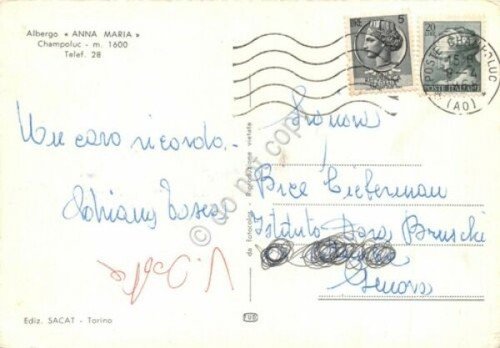 Albergo « ANNA MARIA »
Champoluc - m. 1600
Telef. 28
Un caro ricordo
Adriana
Ediz. SACAT - Torino
da Fotocolor Riproduzione vietata
5
20
POSTE ITALIANE
CHAMPOLUC
(AO)
Signora
Bice Lieberman
Istituto
Genova
do not copy